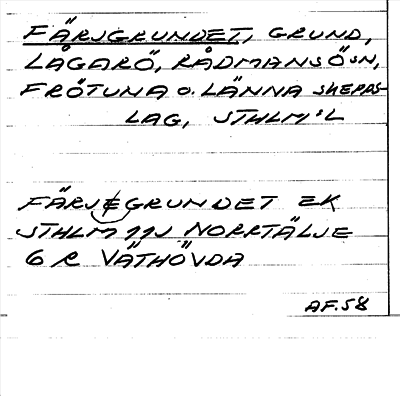 FÄRJGRUNDET, GRUND,
LÅGARÖ, RÅDMANSÖ SN,
FRÖTUNA O. LÄNNA SKEPPS-
LAG, STHLM'S L
FÄRJEGRUNDET EK
STHLM 11J NORRTÄLJE
6 R VÄTHÖVDA
AF.58